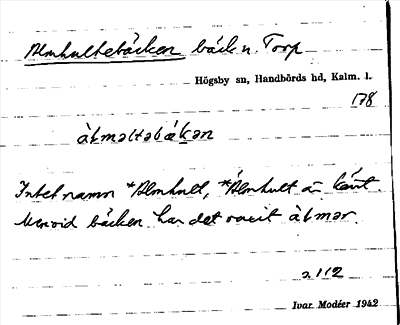 Almhultebäcken bäck n. Torp
Högsby sn, Handbörds hd, Kalm. l.
178
àlmәltәbä́kәn
Intet namn *Almhult, *Ålmhult är känt.
Men vid bäcken har det varit àlmәr.
a 112
Ivar Modéer 1942